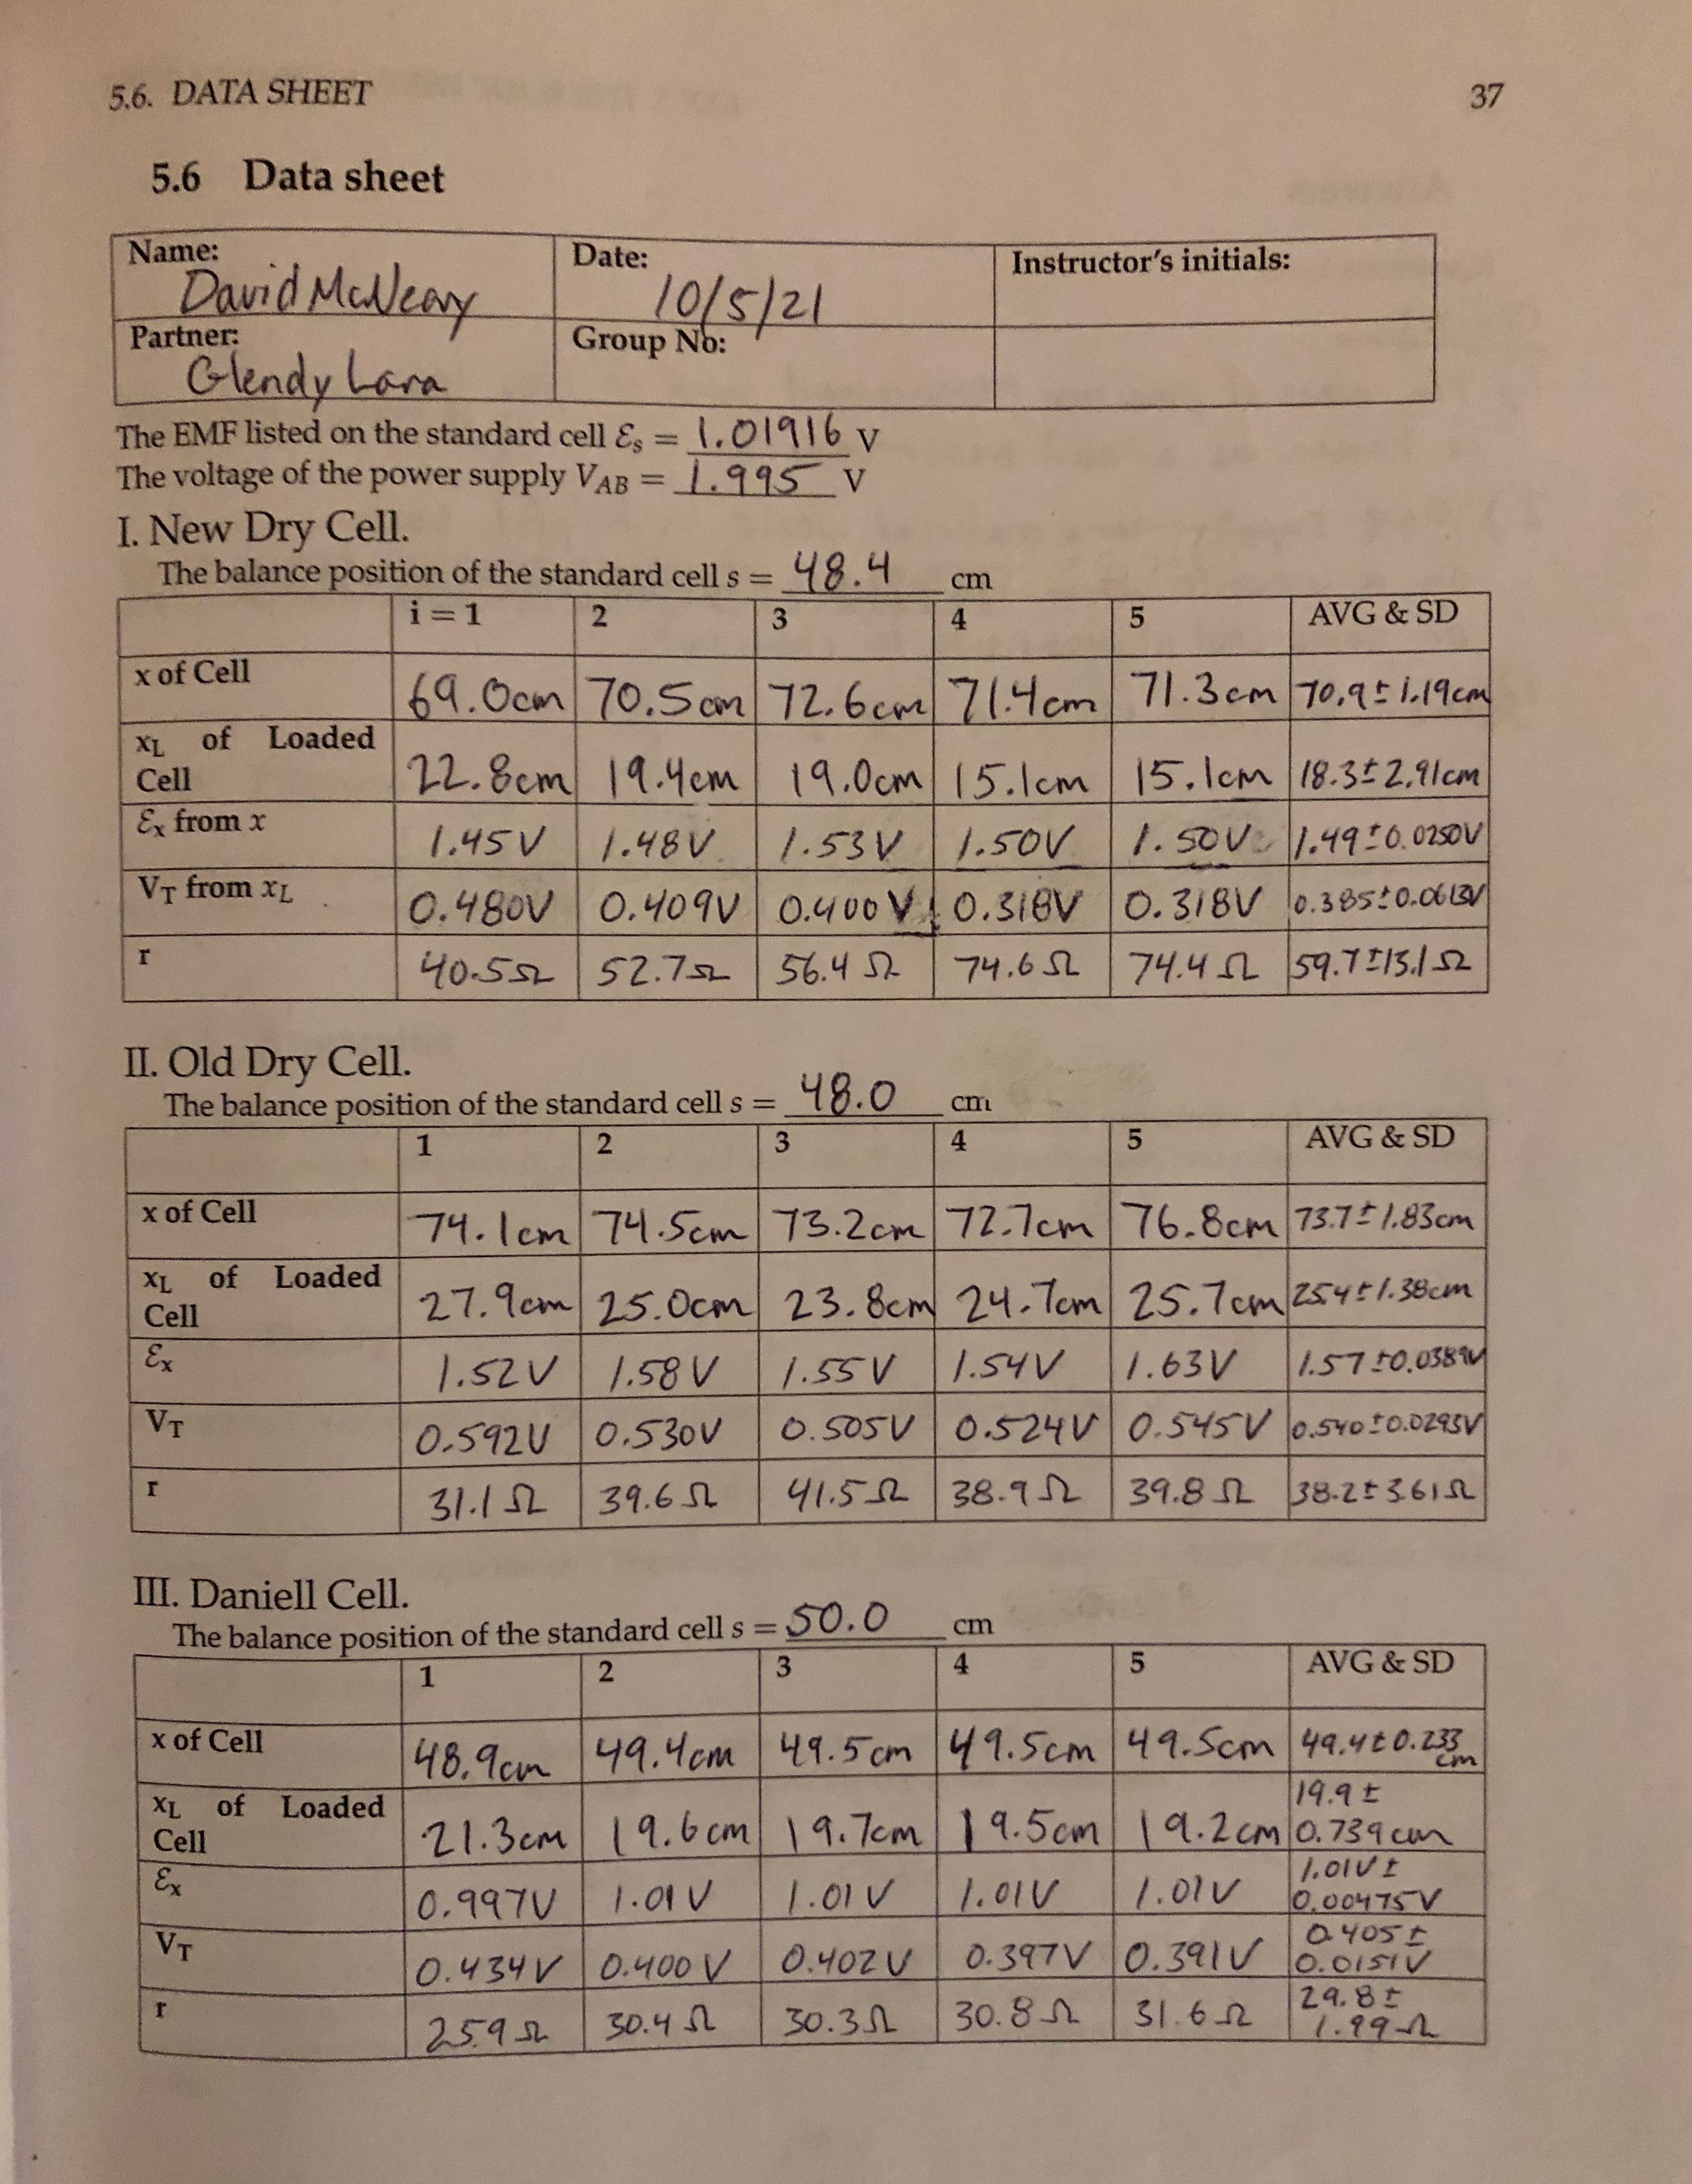 5.6. DATA SHEET 37
5.6 Data sheet
Name: Date: Instructor's initials:
David McNeary 10/5/21
Partner: Group No:
Glendy Lara
The EMF listed on the standard cell Ɛs = 1.01916 V
The voltage of the power supply VAB = 1.995 V
I. New Dry Cell.
The balance position of the standard cell s = 48.4 cm
i = 1 2 3 4 5 AVG & SD
x of Cell 69.0cm 70.5cm 72.6cm 71.4cm 71.3cm 70.9±1.19cm
xL of Loaded
Cell 22.8cm 19.4cm 19.0cm 15.1cm 15.1cm 18.3±2.91cm
Ɛx from x 1.45V 1.48V 1.53V 1.50V 1.50V 1.49±0.0250V
VT from xL 0.480V 0.409V 0.400V 0.318V 0.318V 0.385±0.0613V
r 40.5Ω 52.7Ω 56.4Ω 74.6Ω 74.4Ω 59.7±13.1Ω
II. Old Dry Cell.
The balance position of the standard cell s = 48.0 cm
1 2 3 4 5 AVG & SD
x of Cell 74.1cm 74.5cm 73.2cm 72.7cm 76.8cm 73.7±1.83cm
xL of Loaded
Cell 27.9cm 25.0cm 23.8cm 24.7cm 25.7cm 25.4±1.38cm
Ɛx 1.52V 1.58V 1.55V 1.54V 1.63V 1.57±0.0389V
VT 0.592V 0.530V 0.505V 0.524V 0.545V 0.540±0.0293V
r 31.1Ω 39.6Ω 41.5Ω 38.9Ω 39.8Ω 38.2±3.61Ω
III. Daniell Cell.
The balance position of the standard cell s = 50.0 cm
1 2 3 4 5 AVG & SD
x of Cell 48.9cm 49.4cm 49.5cm 49.5cm 49.5cm 49.4±0.233
cm
xL of Loaded 19.9±
Cell 21.3cm 19.6cm 19.7cm 19.5cm 19.2cm 0.739cm
Ɛx 1.01V±
0.997V 1.01V 1.01V 1.01V 1.01V 0.00475V
VT 0.405±
0.434V 0.400V 0.402V 0.397V 0.391V 0.0151V
r 29.8±
25.9Ω 30.4Ω 30.3Ω 30.8Ω 31.6Ω 1.99Ω